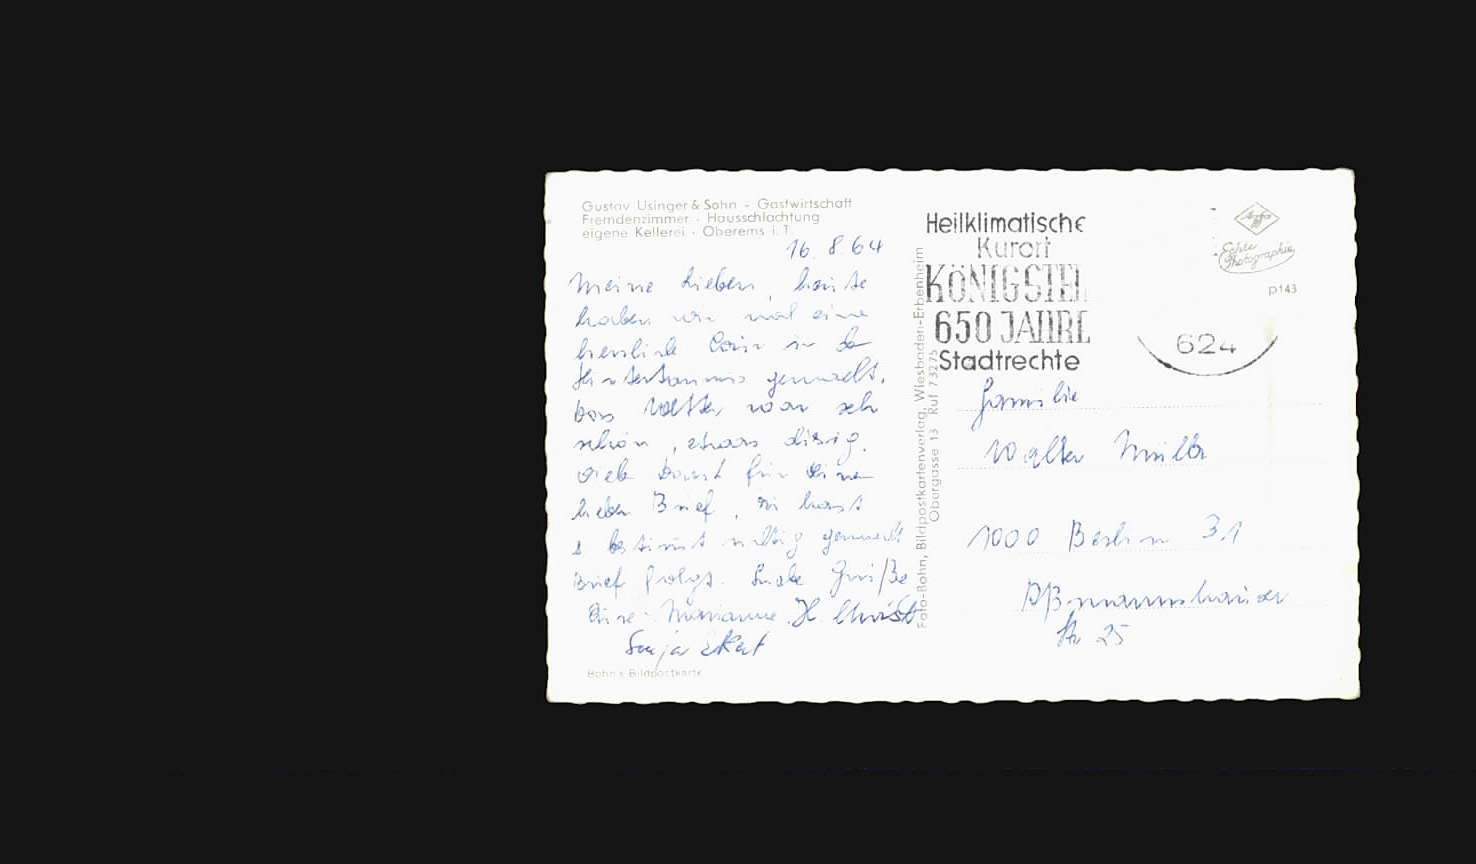 Gustav Usinger & Sohn - Gastwirtschaft
Fremdenzimmer - Hausschlachtung
eigene Kellerei - Oberems i. T.
16. 8. 64
Meine Lieben, heute
haben wir mal eine
herrliche Tour in den
Hintertaunus gemacht.
Das Wetter war sehr
schön, etwas diesig.
Viele Dank für Deinen
lieben Brief, Du hast
es bestimmt richtig gemacht
Brief folgt. Liebe Grüße
Eure Marianne. H. Christ
Sonja
Bohn's Bildpostkarte
Foto-Bohn, Bildpostkartenverlag, Wiesbaden-Erbenheim
Obergasse 13 Ruf 73275
Heilklimatische
Kurort
KÖNIGSTEI
650 JAHRE
Stadtrechte
624
Agfa
Echte
Photographie
p143
Familie
Walter Müller
1000 Berlin 31
Aßmannshauser
Str 25